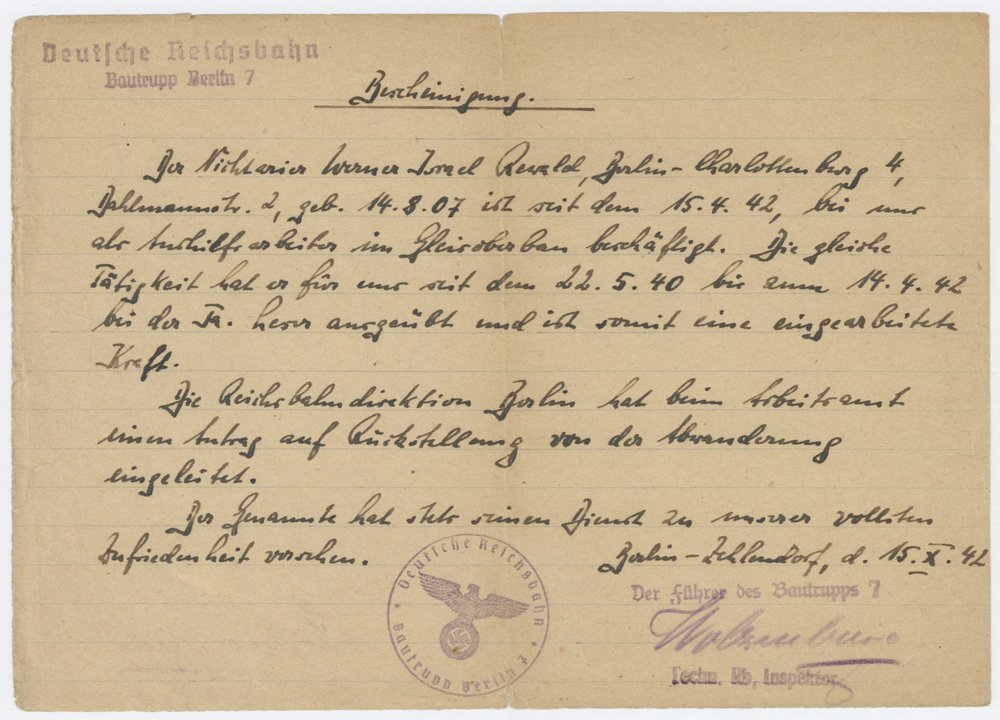 Deutsche Reichsbahn
Bautrupp Berlin 7
Bescheinigung.
Der Nichtarier Werner Israel Rewald, Berlin-Charlottenburg 4,
Dahlmannstr. 2, geb. 14.8.07 ist seit dem 15.4.42, bei uns
als Aushilfsarbeiter im Gleisoberbau beschäftigt. Die gleiche
Tätigkeit hat er für uns seit dem 22.5.40 bis zum 14.4.42
bei der Fa. ausgeübt und ist somit eine eingearbeitete
Kraft.
Die Reichsbahndirektion Berlin hat beim Arbeitsamt
einen Antrag auf Rückstellung von der Abwanderung
eingeleitet.
Der Genannte hat stets seinen Dienst zu unserer vollsten
Zufriedenheit versehen.
Berlin-Zehlendorf, d. 15.X.42
Deutsche Reichsbahn
Bautrupp Berlin 7
Der Führer des Bautrupps 7
Techn. Rb. Inspektor